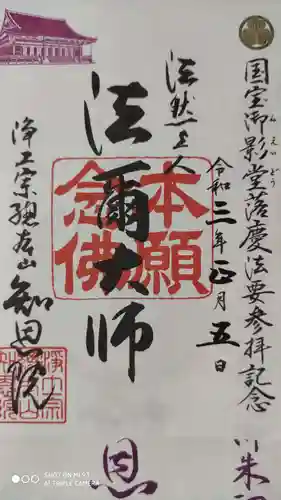 国宝御影堂落慶法要参拝記念
みえいどう
令和二年正月五日
法然上人
法爾大師
本願
念佛
浄土宗総本山
知恩院
恩
SHOT ON MI 9T
AI TRIPLE CAMERA